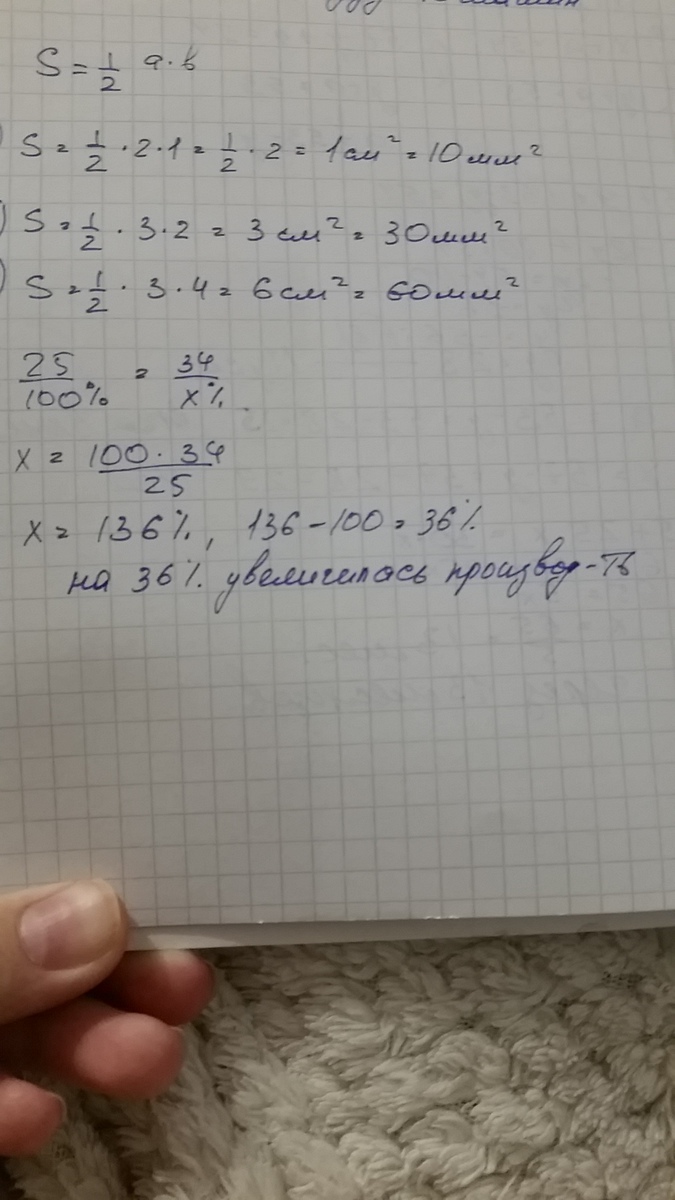 S = 1/2 a·b
) S = 1/2 · 2 · 1 = 1/2 · 2 = 1 см² = 10 мм²
) S = 1/2 · 3 · 2 = 3 см² = 30 мм²
) S = 1/2 · 3 · 4 = 6 см² = 60 мм²
25/100% = 34/x%.
x = 100 · 34/25
x = 136%, 136 - 100 = 36%.
на 36% увеличилась производ-ть